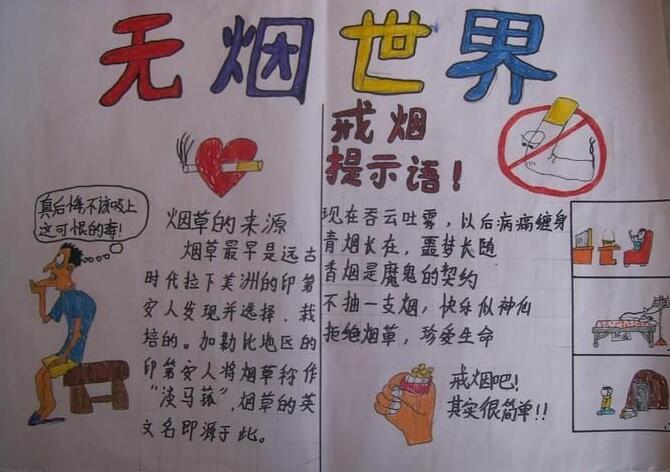 无烟世界
戒烟
提示语！
真后悔，不该吸上
这可恨的毒！
烟草的来源
烟草最早是远古
时代拉下美洲的印第
安人发现并选择．栽
培的。加勒比地区的
印第安人将烟草称作
“淡马菰”，烟草的英
文名即源于此。
现在吞云吐雾，以后病痛缠身
青烟长在，噩梦长随
香烟是魔鬼的契约
不抽一支烟，快乐似神仙
拒绝烟草，珍爱生命
戒烟吧！
其实很简单！！